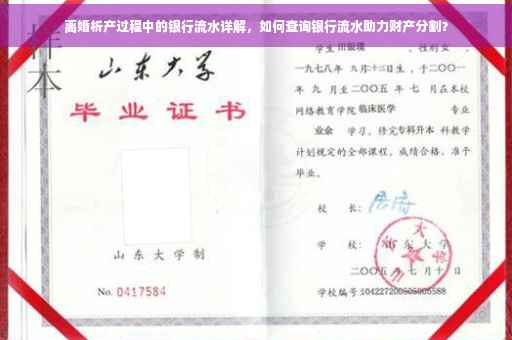 离婚析产过程中的银行流水详解，如何查询银行流水助力财产分割？
样本
山东大学
毕业证书
山东大学制
No. 0417584
学生
性别女，
一九七八年 九月十三日生，于二〇〇一
年 九 月至二〇〇五 年 七 月在本校
网络教育学院 临床医学 专业
业余 学习，修完专科升本科教学
计划规定的全部课程，成绩合格，准予
毕业。
校 长：
学 校： 山东大学
二〇〇五年七月十日
学校编号: